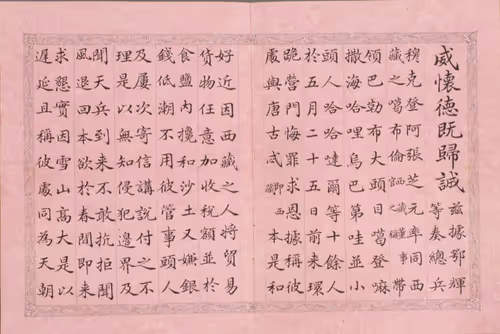 威懷德既歸誠茲據鄂輝等奏總兵
穆克登阿張芝元率同西
藏之噶布倫帶
領巴勒布大頭目噶登嘛
撒海哈哩烏巴第哇並小
頭人哈哈噠爾等十餘人
於五月二十五日前來環
跪營門悔罪求恩據稱彼
處與唐古忒卽西藏本是和
好近因西藏之人將貿易
貨物任意加收稅額並於
食鹽內攙和沙土又嫌銀
錢低潮不用彼管事頭人
及屢次寄信講說付之不
理是以無知侵犯邊界及
聞天兵到來不敢抗拒聞
風退回本欲於春間即來
求懇實因雪山高大是以
遲延且稱彼處同為天朝